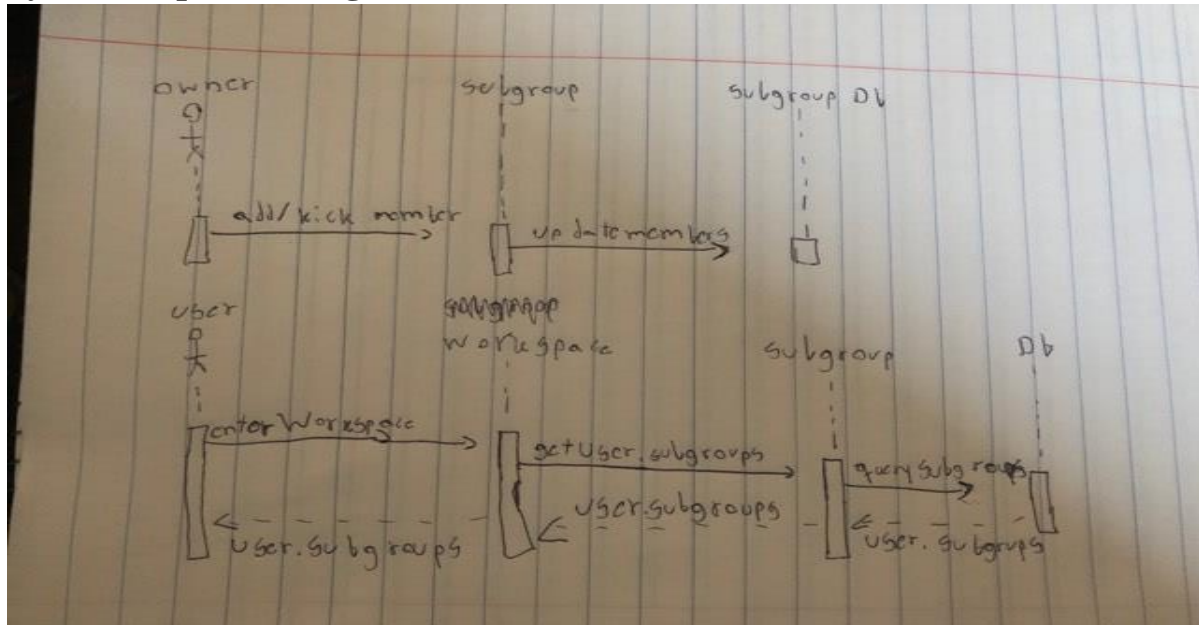 owner
subgroup
subgroup Db
add/kick member
update members
user
workspace
subgroup
Db
enter Workspace
get User.subgroups
query subgroups
user.subgroups
user.subgroups
user.subgrups